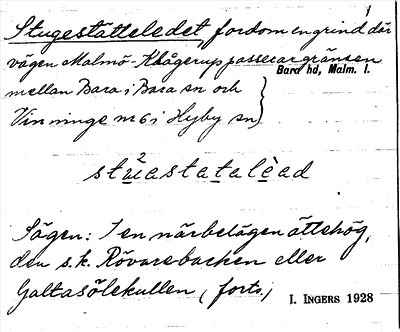 1
Stugestätteledet, fordom en grind där
vägen Malmö-Klågerup passerar gränsen
Bara hd, Malm. l.
mellan Bara i Bara sn och
Vinninge nr 6 i Hyby sn
stu²astatalèad
Sägen: I en närbelägen ättehög,
den s.k. Rövarebacken eller
Galtasölekullen (forts.)
I. INGERS 1928